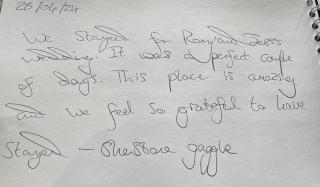 26/04/24
We stayed for Rory and Jess's
wedding. It was a perfect couple
of days. This place is amazing
and we feel so grateful to have
stayed — gaggle